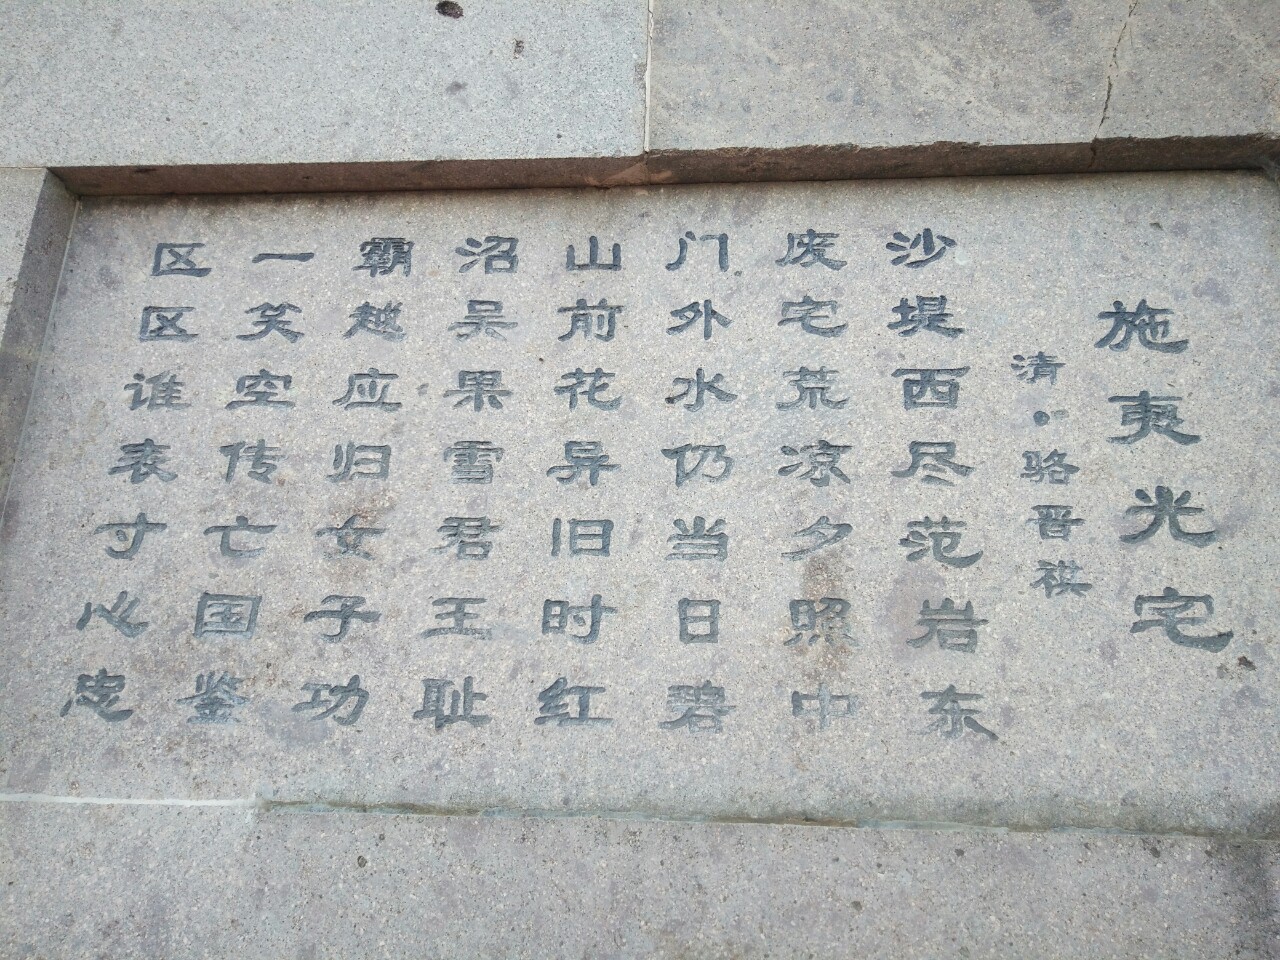 施夷光宅
清·骆晋祺
沙堤西尽范岩东
废宅荒凉夕照中
门外水仍当日碧
山前花异旧时红
沼吴果雪君王耻
霸越应归女子功
一笑空传亡国鉴
区区谁表寸心忠